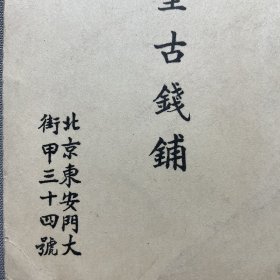 古錢鋪
北京東安門大
街甲三十四號